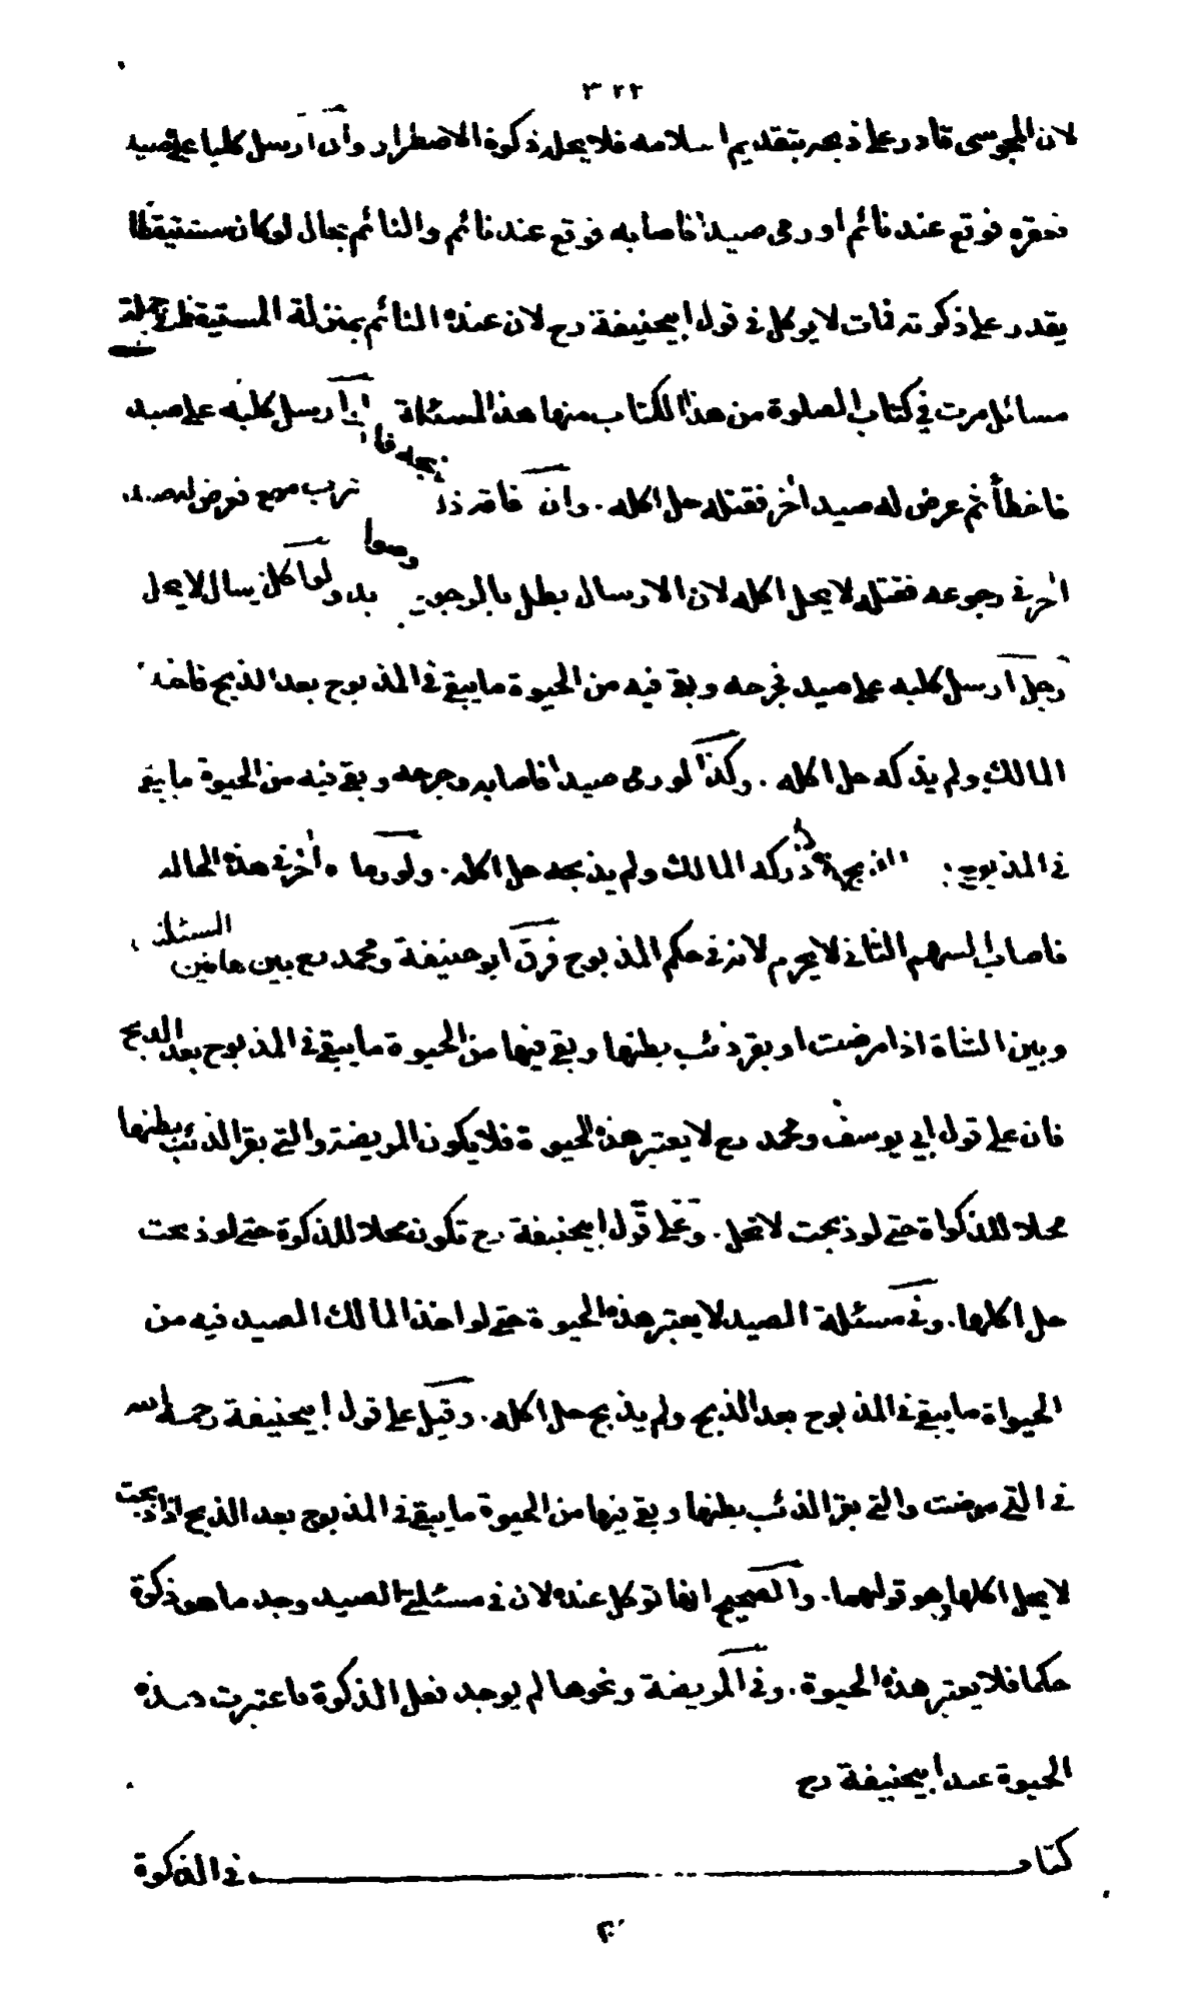 ٣٢٢
لان المجوسى قادر على ذبحه بتقديم اسلامه فلا يحل ذكوة الاضطرار وان ارسل كلبا على صيد
فعقره فوقع عند نائم او رمى صيدا فاصابه فوقع عند نائم والنائم بحال لو كان مستيقظا
يقدر على ذكوته فمات لا يوكل فى قول ابيحنيفة رح لان عنده النائم بمنزلة المستيقظ فى جملة
مسائل مرت فى كتاب الصلوة من هذا الكتاب منها هذه المسئلة ارسل كلبه على صيد
فاخطأ ثم عرض له صيد اٰخر فقتله حل اكله . وان فاته فرجع فعرض له صيد
اٰخر فى رجوعه فقتله لا يحل اكله لان الارسال بطل بالرجوع ولو اكل لا يحل
رجل ارسل كلبه على صيد فجرحه وبقى فيه من الحيوة ما يبقى فى المذبوح بعد الذبح فاخذه
المالك ولم يذكه حل اكله . وكذا لو رمى صيدا فاصابه وجرحه وبقى فيه من الحيوة ما يبقى
فى المذبوح الذبح المالك ولم يذبحه حل اكله . ولو رماه اٰخر فى هذه الحالة
فاصابه السهم الثانى لا يحرم لانه فى حكم المذبوح فرق ابو حنيفة ومحمد رح بين هاتين المسئلتين
وبين الشاة اذا مرضت او بقر ذئب بطنها وبقى فيها من الحيوة ما يبقى فى المذبوح بعد الذبح
فان على قول ابي يوسف ومحمد رح لا يعتبر هذه الحيوة فلا يكون المريضة والتى بقر الذئب بطنها
محلا للذكواة حتى لو ذبحت لا تحل . وعلى قول ابيحنيفة رح تكون محلا للذكوة حتى لو ذبحت
حل اكلها . وفى مسئلة الصيد لا يعتبر هذه الحيوة حتى لو اخذ المالك الصيد فيه من
الحيواة ما يبقى فى المذبوح بعد الذبح ولم يذبح حل اكله . وقيل على قول ابيحنيفة رحمه الله
فى التى مرضت والتى بقر الذئب بطنها وبقى فيها من الحيوة ما يبقى فى المذبوح بعد الذبح اذا ذبحت
لا يحل اكلها وهو قولهما . والصحيح انها توكل عنده لان فى مسئلتى الصيد وجد ما هو ذكوة
حكما فلا يعتبر هذه الحيوة . وفى المريضة ونحوها لم يوجد فعل الذكوة فاعتبرت هذه
الحيوة عند ابيحنيفة رح
كتاب فى الذكوة